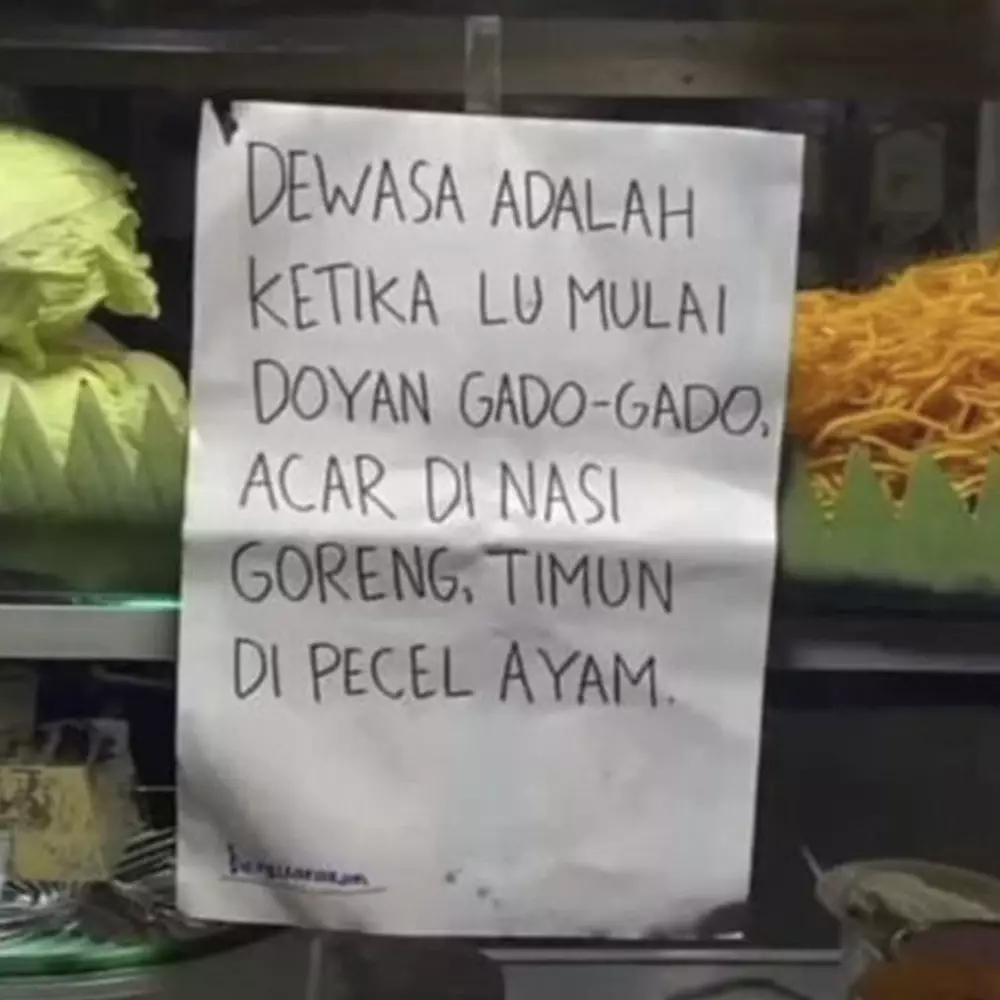 DEWASA ADALAH
KETIKA LU MULAI
DOYAN GADO-GADO,
ACAR DI NASI
GORENG, TIMUN
DI PECEL AYAM.